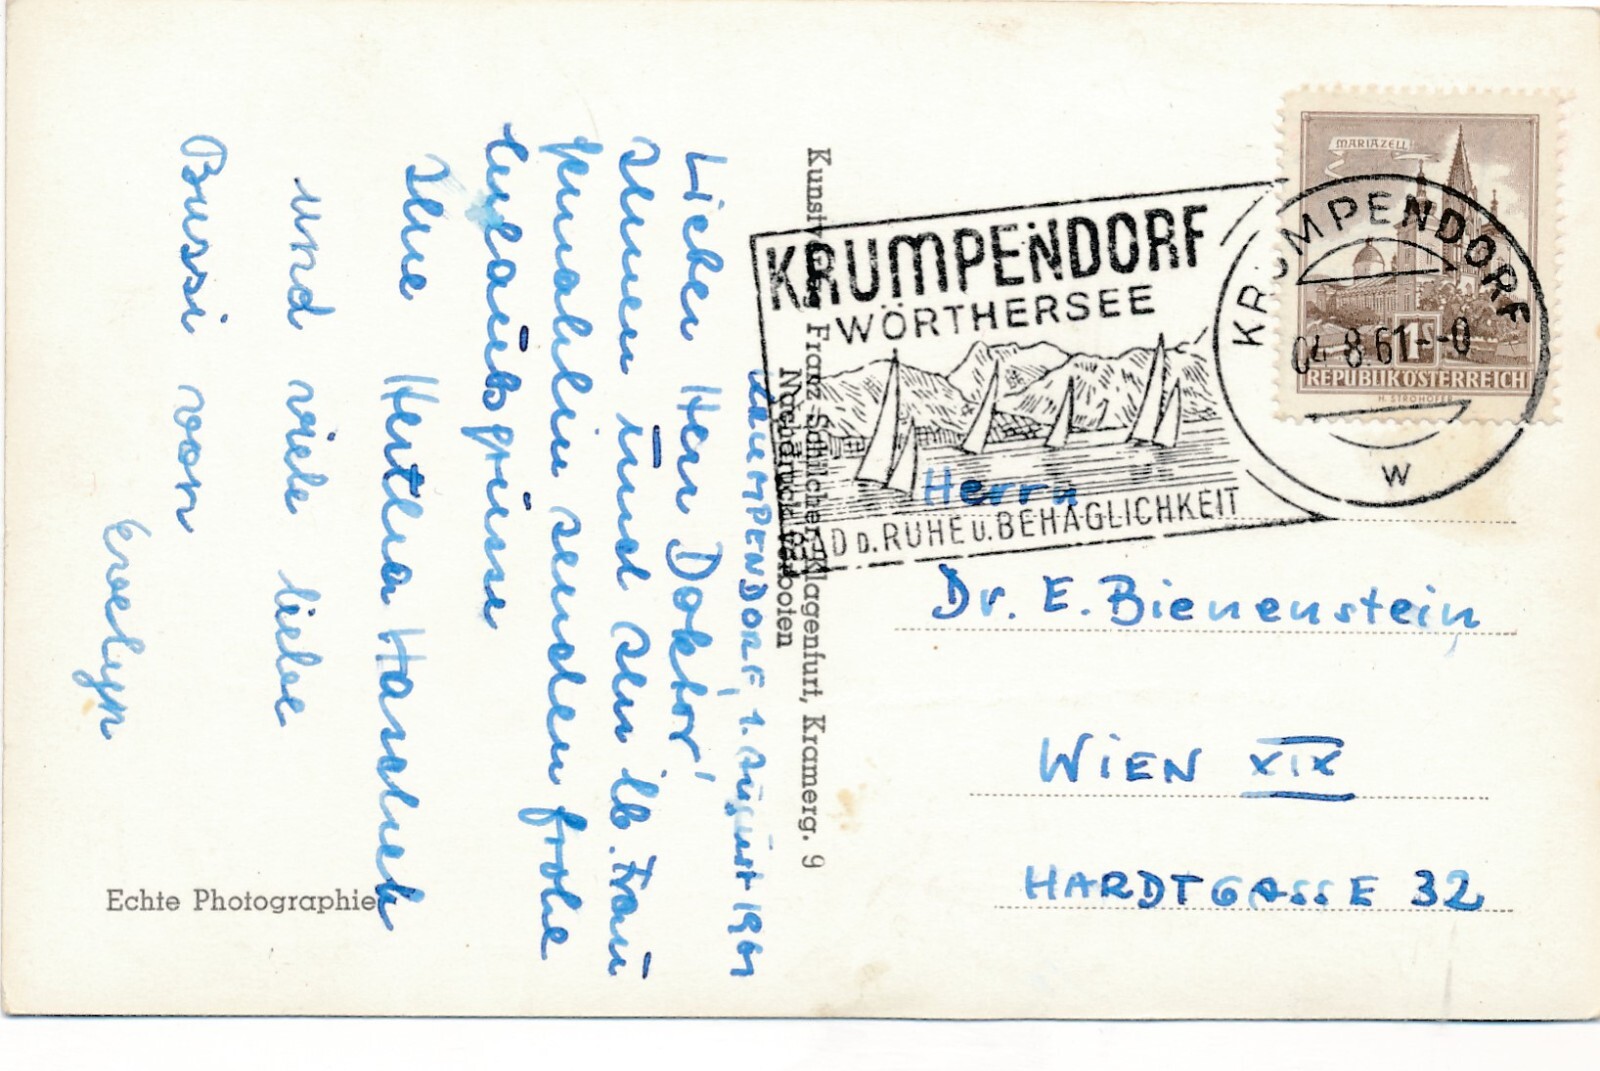 KRUMPENDORF, 1. August 1961
Lieber Herr Doktor!
Ihnen und Ihrer lb. Frau
Gemahlin senden frohe
Urlaubsgrüsse
Ihre Hertha Haschek
und viele liebe
Bussi von
Evelyn
Echte Photographie
Kunstverlag Franz Schilcher, Klagenfurt, Kramerg. 9
Nachdruck verboten
KRUMPENDORF
WÖRTHERSEE
BAD D. RUHE U. BEHAGLICHKEIT
MARIAZELL
1 S
REPUBLIK ÖSTERREICH
H. STROHOFER
KRUMPENDORF
04.8.61--0
W
Herrn
Dr. E. Bienenstein,
WIEN XIX
HARDTGASSE 32